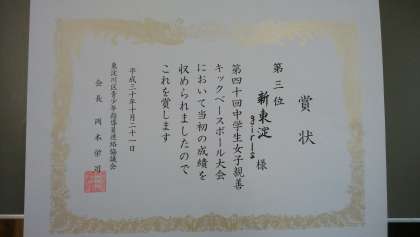 賞状
第三位
新東淀girls 様
第四十回中学生女子親善
キックベースボール大会
において当初の成績を
収められましたので
これを賞します
平成三十年十月二十一日
東淀川区青少年指導員連絡協議会
会長 岡本栄司